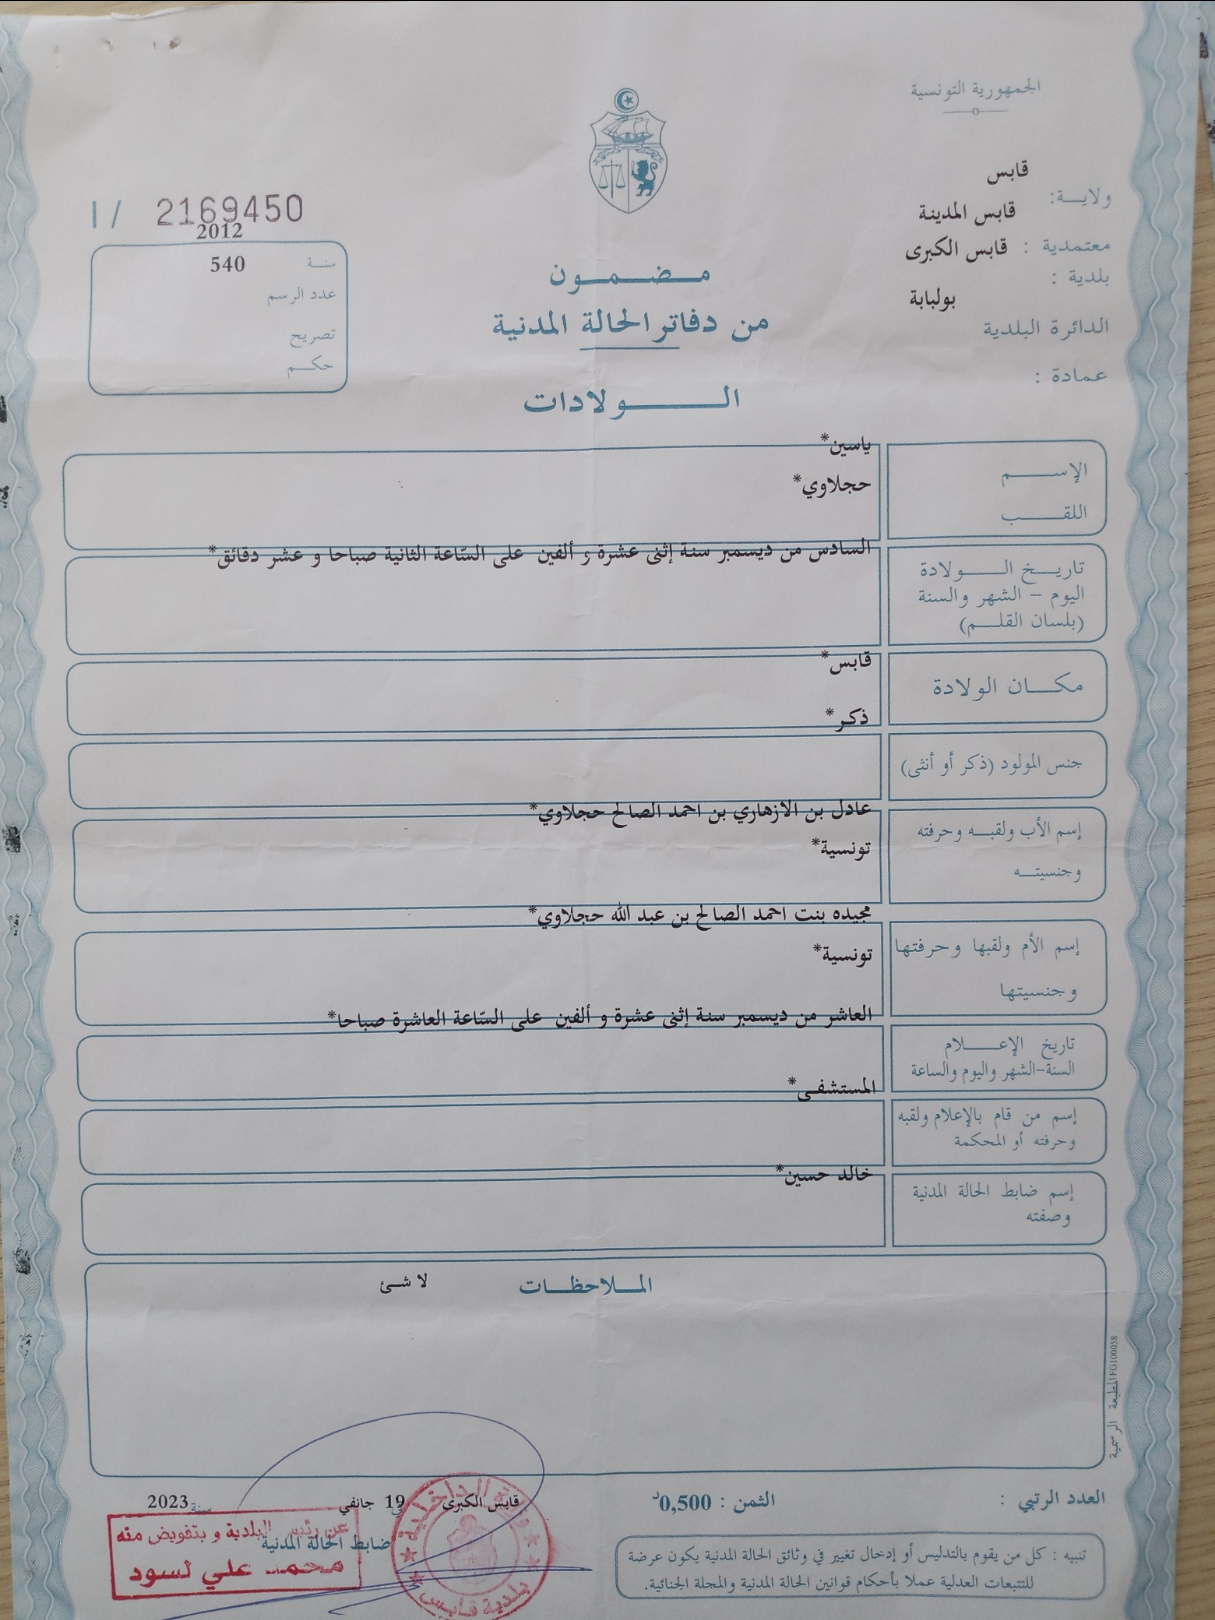 الجمهورية التونسية
قابس
ولايــة:
قابس المدينة
معتمدية : قابس الكبرى
بلدية :
بولبابة
الدائرة البلدية
عمادة :
I / 2169450
2012
سنـة 540
عدد الرسم
تصريح
حكـم
مـضـمـون
من دفاتر الحالة المدنية
الـولادات
ياسين*
الإسـم
حجلاوي*
اللقـب
السادس من ديسمبر سنة إثنى عشرة و ألفين على السّاعة الثانية صباحا و عشر دقائق*
تاريـخ الـولادة
اليوم – الشهر والسنة
(بلسان القلـم)
قابس*
مكـان الولادة
ذكر*
جنس المولود (ذكر أو أنثى)
عادل بن الازهاري بن احمد الصالح حجلاوي*
إسم الأب ولقبـه وحرفته
تونسية*
وجنسيتـه
مجيده بنت احمد الصالح بن عبد الله حجلاوي*
إسم الأم ولقبها وحرفتها
تونسية*
وجنسيتها
العاشر من ديسمبر سنة إثنى عشرة و ألفين على السّاعة العاشرة صباحا*
تاريخ الإعـلام
السنة-الشهر واليوم والساعة
المستشفى*
إسم من قام بالإعلام ولقبه
وحرفته أو المحكمة
خالد حسين*
إسم ضابط الحالة المدنية
وصفته
الملاحظـات لا شئ
المطبعة الرسمية FG100058
العدد الرتبي :
الثمن : 0,500د
قابس الكبرى في 19 جانفي سنة 2023
ضابط الحالة المدنية
عن رئيس البلدية و بتفويض منه
محمد علي لسود
وزارة الداخلية
بلدية قابس
تنبيه : كل من يقوم بالتدليس أو إدخال تغيير في وثائق الحالة المدنية يكون عرضة
للتتبعات العدلية عملا بأحكام قوانين الحالة المدنية والمجلة الجنائية.